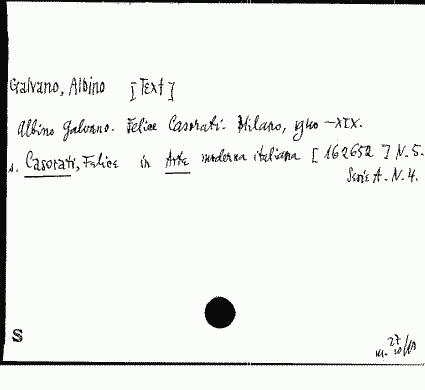 Galvano, Albino [Text]
Albino Galvano. Felice Casorati. Milano, 1940 - XIX.
s. Casorati, Felice in Arte moderna italiana [162652] N. 5.
Serie A. N. 4.
S
27